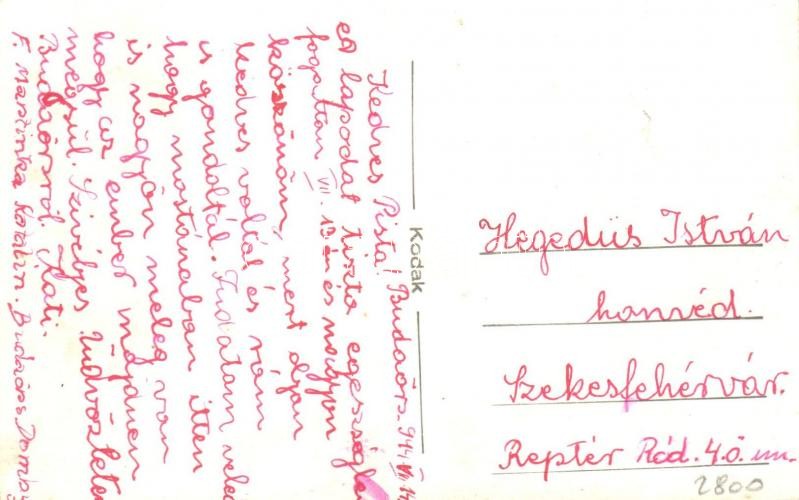 Kedves Pista! Budaörs. 944 VII 14
eő lapodat tiszta egességbe
fogattam VII. 13-án és nagyon
köszönöm, mert olyan
kedves voltál és rám
is gondoltál. Tudatom veled
hogy mostanában itten
is nagyon meleg van
hogy az ember majdnem
megsül. Szivélyes üdvözlettel
Budaörsről. Kati.
F. Martinka Katalin. Budaörs Domb u
Kodak
Hegedüs István
honvéd.
Szekesfehérvár.
Reptér Rád. 4. ö. un.
2800